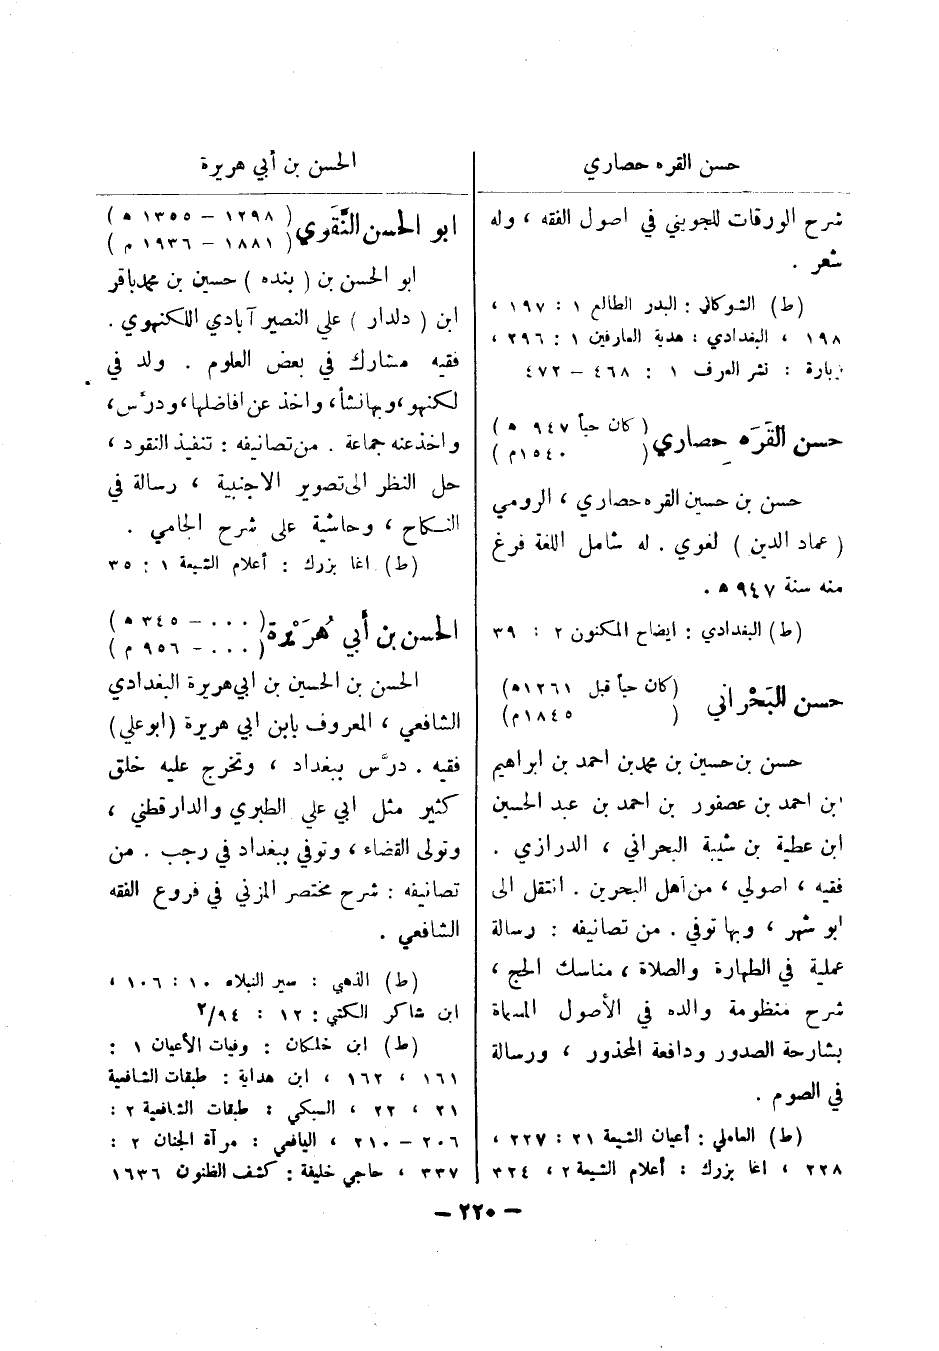 حسن القره حصاري
شرح الورقات للجويني في اصول الفقه ، وله
شعر .
(ط) الشوكاني : البدر الطالع ١ : ١٩٧ ،
١٩٨ ، البغدادي : هدية العارفين ١ : ٢٩٦ ،
زبارة : نشر العرف ١ : ٤٦٨ – ٤٧٢
حسن القَرَه حصاري (كان حياً ٩٤٧ هـ)
(١٥٤٠م)
حسن بن حسين القره حصاري ، الرومي
( عماد الدين ) لغوي . له شامل اللغة فرغ
منه سنة ٩٤٧ هـ .
(ط) البغدادي : ايضاح المكنون ٢ : ٣٩
حسن البَحْراني (كان حياً قبل ١٢٦١هـ)
(١٨٤٥م)
حسن بن حسين بن محمد بن احمد بن ابراهيم
ابن احمد بن عصفور بن احمد بن عبد الحسين
ابن عطية بن شيبة البحراني ، الدرازي .
فقيه ، اصولي ، من أهل البحرين . انتقل الى
ابو شهر ، وبها توفي . من تصانيفه : رسالة
عملية في الطهارة والصلاة ، مناسك الحج ،
شرح منظومة والده في الأصول المسماة
بشارحة الصدور ودافعة المحذور ، ورسالة
في الصوم .
(ط) العاملي : أعيان الشيعة ٢١ : ٢٢٧ ،
٢٢٨ ، اغا بزرك : أعلام الشيعة ٢ ، ٣٢٤
الحسن بن أبي هريرة
ابو الحسن النَّقَوي (١٢٩٨ – ١٣٥٥ هـ)
(١٨٨١ – ١٩٣٦ م)
ابو الحسن بن ( بنده ) حسين بن محمد باقر
ابن ( دلدار ) علي النصير آبادي اللكنهوي .
فقيه مشارك في بعض العلوم . ولد في
لكنهو ، وبها نشأ ، واخذ عن افاضلها ، ودرّس ،
واخذ عنه جماعة . من تصانيفه : تنفيذ النقود ،
حل النظر الى تصوير الاجنبية ، رسالة في
النكاح ، وحاشية على شرح الجامي .
(ط) اغا بزرك : أعلام الشيعة ١ : ٣٥
الحسن بن أبي هُرَيْرة (٠٠٠ – ٣٤٥ هـ)
(٠٠٠ – ٩٥٦ م)
الحسن بن الحسين بن ابي هريرة البغدادي
الشافعي ، المعروف بابن ابي هريرة (ابو علي)
فقيه . درَّس ببغداد ، وتخرج عليه خلق
كثير مثل ابي علي الطبري والدارقطني ،
وتولى القضاء ، وتوفي ببغداد في رجب . من
تصانيفه : شرح مختصر المزني في فروع الفقه
الشافعي .
(ط) الذهبي : سير النبلاء ١٠ : ١٠٦ ،
ابن شاكر الكتبي : ١٢ : ٩٤/٢
(ط) ابن خلكان : وفيات الأعيان ١ :
١٦١ ، ١٦٢ ، ابن هداية : طبقات الشافعية
٢١ ، ٢٢ ، السبكي : طبقات الشافعية ٢ :
٢٠٦ – ٢١٠ ، اليافعي : مرآة الجنان ٢ :
٣٣٧ ، حاجي خليفة : كشف الظنون ١٦٣٦
– ٢٢٠ –